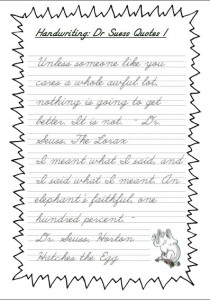 Handwriting: Dr Suess Quotes 1
Unless someone like you
cares a whole awful lot,
nothing is going to get
better. It is not. - Dr.
Seuss, The Lorax
I meant what I said, and
I said what I meant. An
elephant's faithful, one
hundred percent. -
Dr. Seuss, Horton
Hatches the Egg